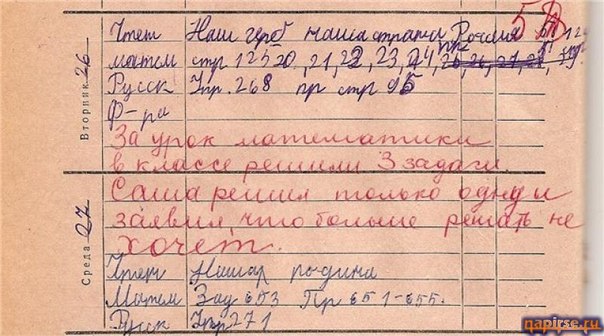 Вторник 26
Чтен Наш герб наша страна Россия
5
матем стр 125 20, 21, 22, 23, 24, 25, 26, 27, 28, 29
Русск Упр. 268 пр стр 95
Ф-ра
За урок математики
в классе решили 3 задачи.
Саша решил только одну и
заявил, что больше решать не
хочет.
Среда 27
Чтен Наша родина
Матем Зад 653 Пр 651-655.
Русск Упр 271
napirse.ru